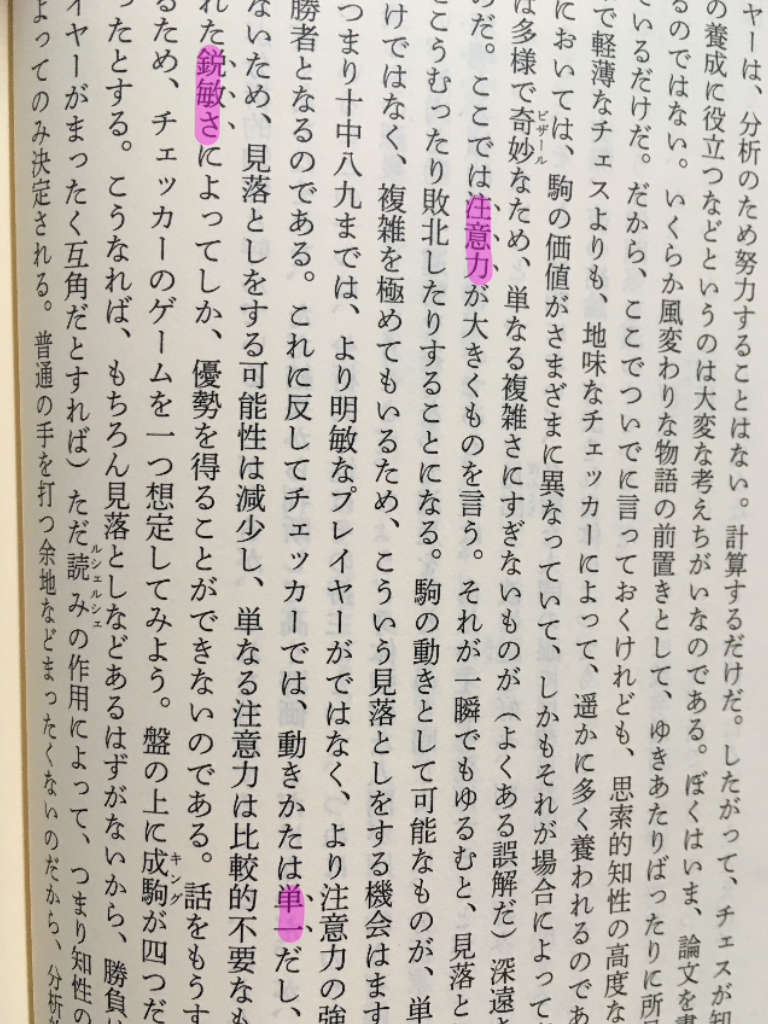 ヤーは、分析のため努力することはない。計算するだけだ。したがって、チェスが知
の養成に役立つなどというのは大変な考えちがいなのである。ぼくはいま、論文を書
るのではない。いくらか風変わりな物語の前置きとして、ゆきあたりばったりに所
ているだけだ。だから、ここでついでに言っておくけれども、思索的知性の高度な
で軽薄なチェスよりも、地味なチェッカーによって、遥かに多く養われるのであ
においては、駒の価値がさまざまに異なっていて、しかもそれが場合によって
ビザール
は多様で奇妙なため、単なる複雑さにすぎないものが（よくある誤解だ）深遠と
のだ。ここでは注意力が大きくものを言う。それが一瞬でもゆるむと、見落と
こうむったり敗北したりすることになる。駒の動きとして可能なものが、単
けではなく、複雑を極めてもいるため、こういう見落としをする機会はます
つまり十中八九までは、より明敏なプレイヤーがではなく、より注意力の強
勝者となるのである。これに反してチェッカーでは、動きかたは単一だし、
ないため、見落としをする可能性は減少し、単なる注意力は比較的不要なも
れた鋭敏さによってしか、優勢を得ることができないのである。話をもうす
キング
るため、チェッカーのゲームを一つ想定してみよう。盤の上に成駒が四つだ
ったとする。こうなれば、もちろん見落としなどあるはずがないから、勝負
ルシェルシェ
イヤーがまったく互角だとすれば）ただ読みの作用によって、つまり知性の
よってのみ決定される。普通の手を打つ余地などまったくないのだから、分析